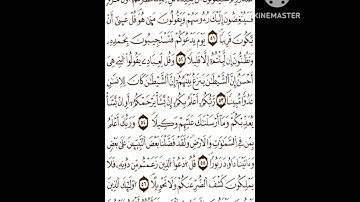 فَسَيُنْغِضُونَ إِلَيْكَ رُءُوسَهُمْ وَيَقُولُونَ مَتَىٰ هُوَ قُلْ عَسَىٰ أَنْ
يَكُونَ قَرِيبًا ٥١ يَوْمَ يَدْعُوكُمْ فَتَسْتَجِيبُونَ بِحَمْدِهِ
وَتَظُنُّونَ إِنْ لَبِثْتُمْ إِلَّا قَلِيلًا ٥٢ وَقُلْ لِعِبَادِي يَقُولُوا الَّتِي هِيَ
أَحْسَنُ إِنَّ الشَّيْطَانَ يَنْزَغُ بَيْنَهُمْ إِنَّ الشَّيْطَانَ كَانَ لِلْإِنْسَانِ
عَدُوًّا مُبِينًا ٥٣ رَبُّكُمْ أَعْلَمُ بِكُمْ إِنْ يَشَأْ يَرْحَمْكُمْ أَوْ إِنْ يَشَأْ
يُعَذِّبْكُمْ وَمَا أَرْسَلْنَاكَ عَلَيْهِمْ وَكِيلًا ٥٤ وَرَبُّكَ أَعْلَمُ
بِمَنْ فِي السَّمَاوَاتِ وَالْأَرْضِ وَلَقَدْ فَضَّلْنَا بَعْضَ النَّبِيِّينَ عَلَىٰ بَعْضٍ
وَآتَيْنَا دَاوُودَ زَبُورًا ٥٥ قُلِ ادْعُوا الَّذِينَ زَعَمْتُمْ مِنْ دُونِهِ فَلَا
يَمْلِكُونَ كَشْفَ الضُّرِّ عَنْكُمْ وَلَا تَحْوِيلًا ٥٦ أُولَٰئِكَ الَّذِينَ
Made with
KINEMASTER